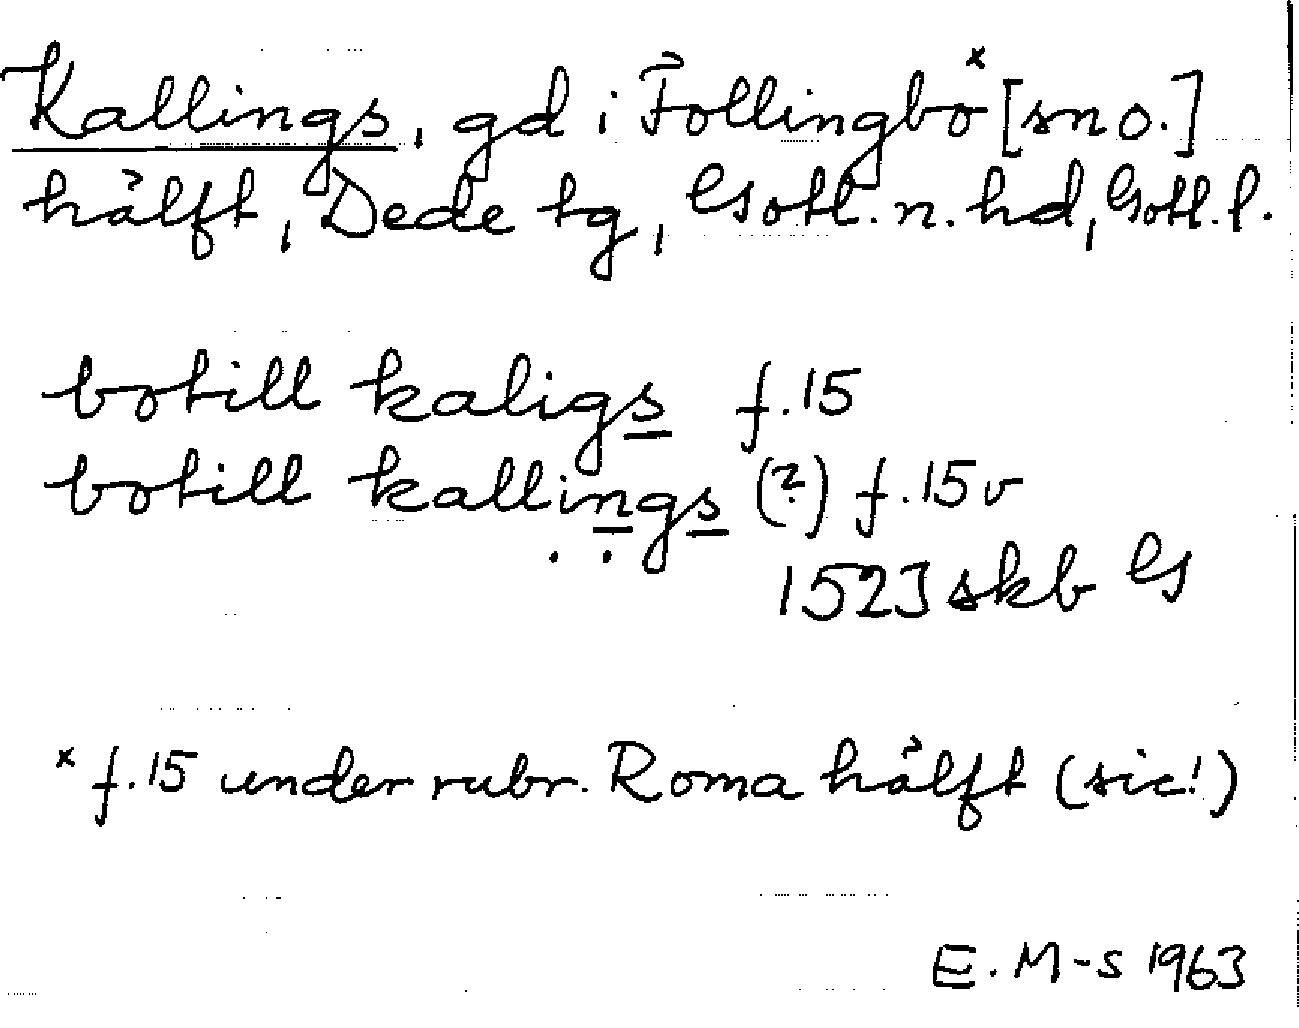 Kallings, gd i Follingbo* [sn o.]
hälft, Dede tg, Gotl. n. hd, Gotl. l.
botill kaligs f. 15
botill kallings (?) f. 15v
1523 skb G
* f. 15 under rubr. Roma hälft (sic!)
E. M-s 1963